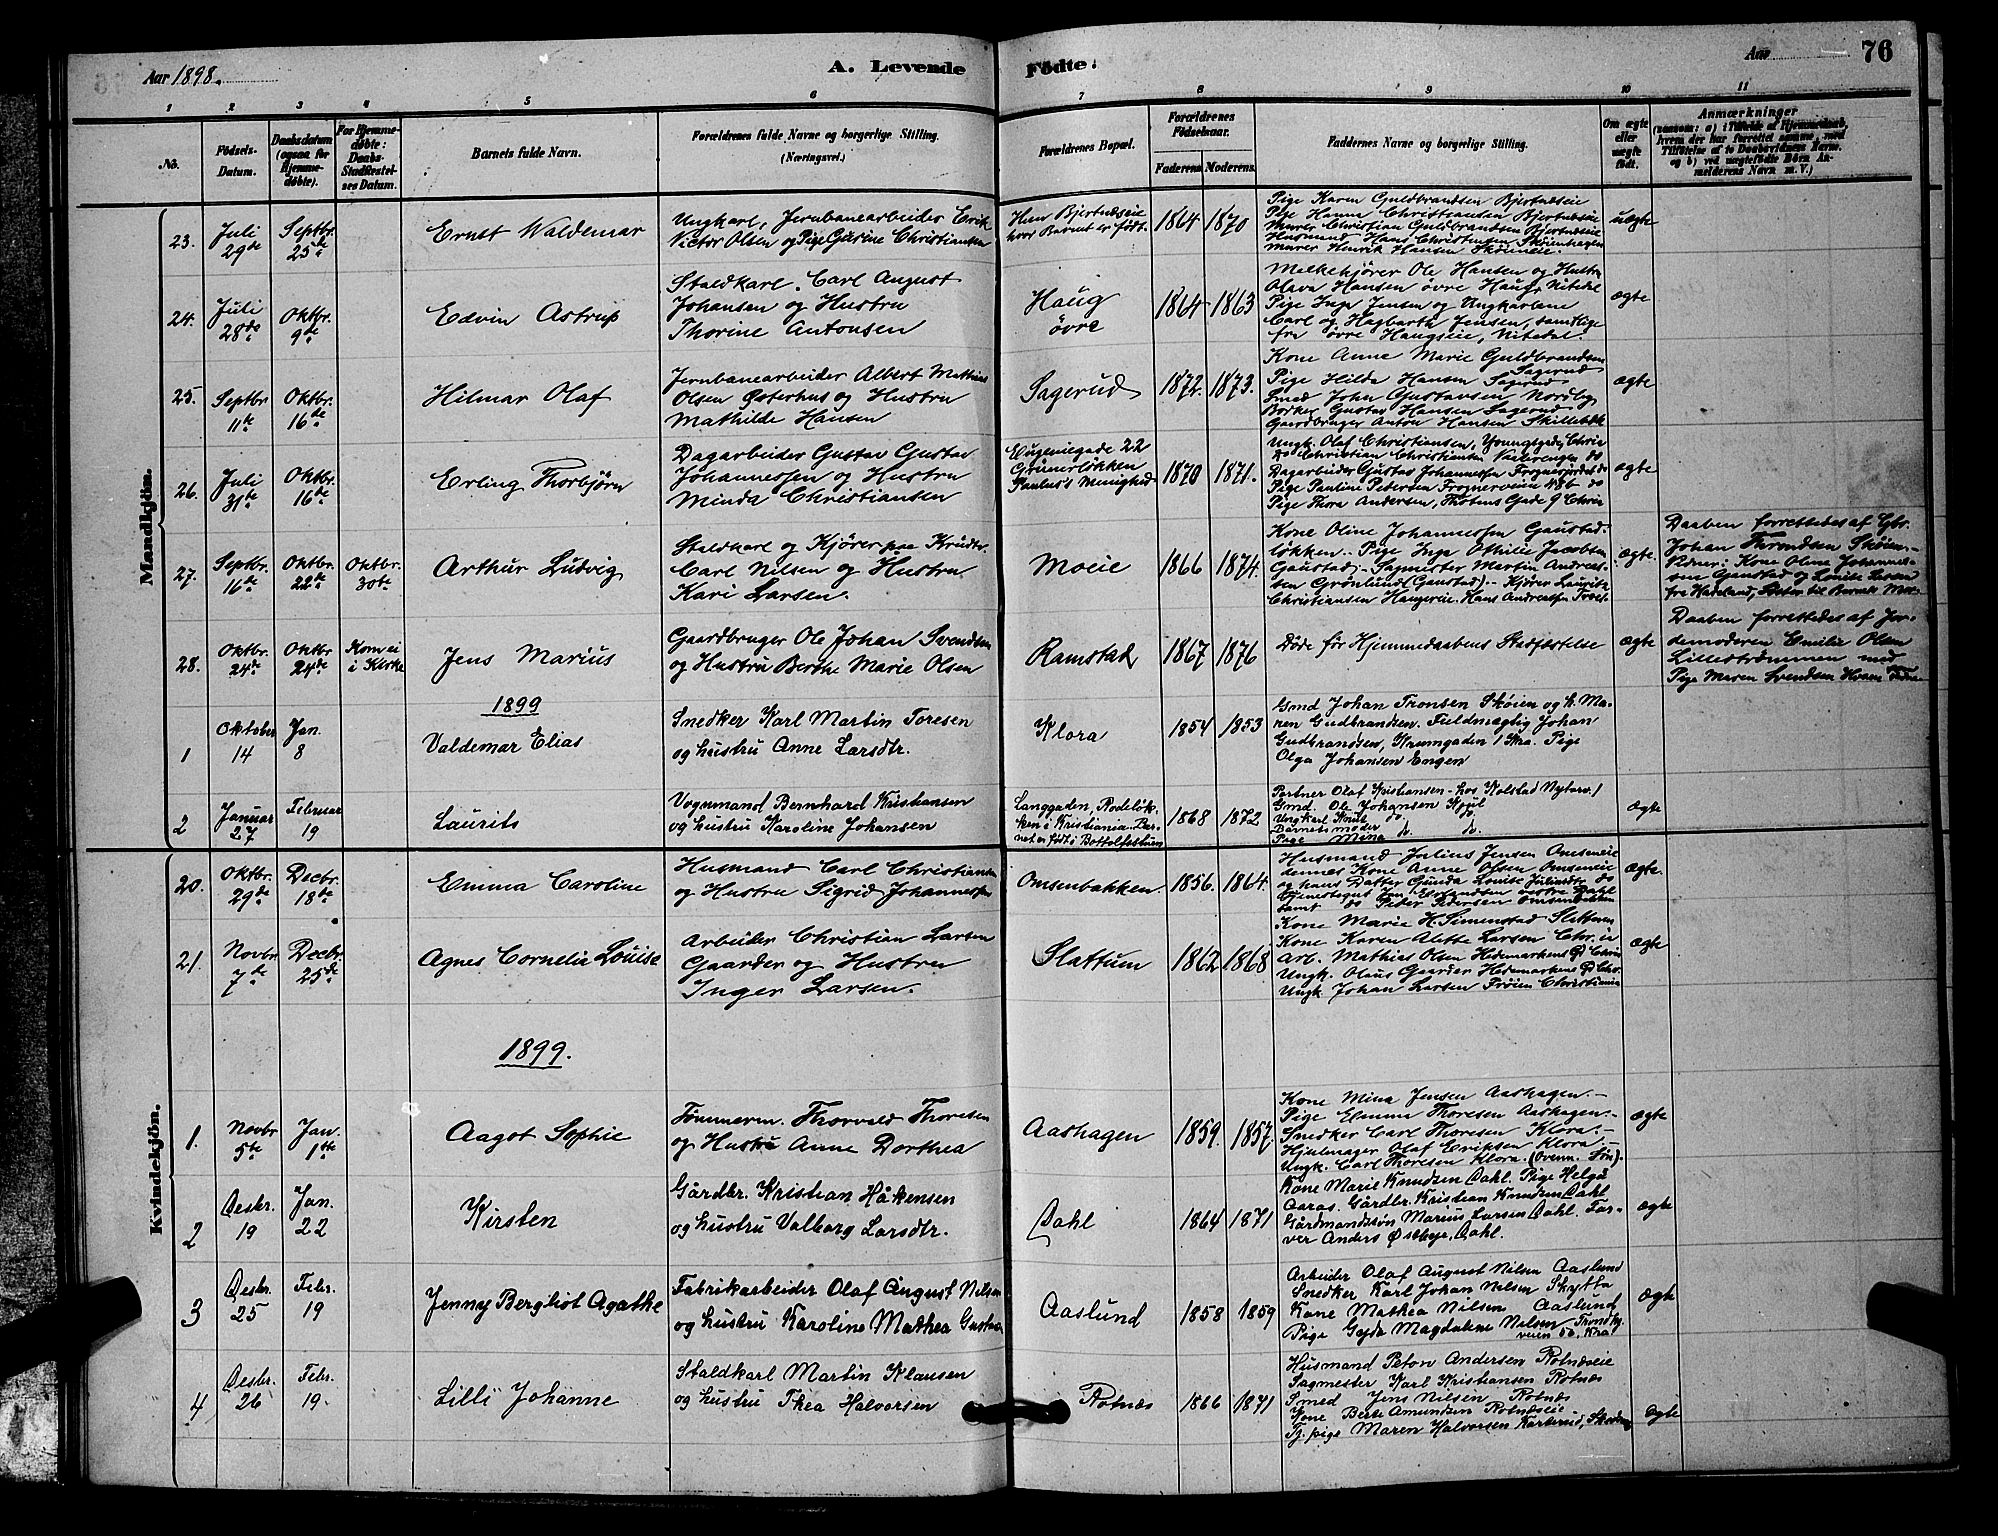 Aar 1898.
A. Levende
Fødte.
Aar
76
1 2 3 4 5 6 7 8 9 10 11
No.
Fødsels-Datum.
Daabsdatum (ogsaa for Hjemme-døbte).
For Hjemme-døbte: Daabs-Stadfæstel-ses Datum.
Barnets fulde Navn.
Forældrenes fulde Navne og borgerlige Stilling. (Næringsvei.)
Forældrenes Bopæl.
Forældrenes Fødselsaar.
Faderens
Moderens.
Faddernes Navne og borgerlige Stilling.
Om ægte eller uægte født.
Anmærkninger
(saasom: a) i Tilfælde af Hjemmedaab, hvem der har forrettet samme, med Tilføielse af to Daabsvidners Navne. og b) ved uægtefødte Børn An-melderens Navn m. V.)
Mandkjön.
23.
Juli 29de
Septbr. 25de
Ernst Waldemar
Ungkarl, Jernbanearbeider Erik
Victor Olsen og Pige Gurine Christiansen
Hun Bjertnæseie
hvor Barnet er født.
1864 1870
Pige Karen Guldbrandsen Bjertnæseie
Pige Hanna Christiansen Bjertnæseie
Murer Christian Guldbrandsen Bjertnæseie
Husmand Hans Christensen Skøienhagen
Murer Henrik Hansen Skøieneie.
uægte
24.
Juli 28de
Oktbr. 9de
Edvin Astrup
Staldkarl. Carl August
Johansen og Hustru
Thorine Antonsen
Haug
øvre
1864 1863
Melkekjører Ole Hansen og Hustru
Olava Hansen øvre Haug, Nitedal
Pige Inga Jensen og Ungkarlene
Carl og Hagbarth Jensen, samtlige
fra øvre Haugseie, Nitedal.
ægte
25.
Septbr 11te
Oktbr. 16de
Hilmar Olaf
Jernbanearbeider Albert Mathias
Olsen Østerhus og Hustru
Mathilde Hansen
Sagerud
1872. 1873.
Kone Anne Marie Guldbrandsen
Sagerud
Pige Hilda Hansen Sagerud
Smed John Gustavsen Nordby
Bødker Gustav Hansen Sagerud
Gaardbruger Anton Hansen Skillebæk
ægte
26.
Juli 31te
Oktbr. 16de
Erling Thorbjörn
Dagarbeider Gustav Gustav
Johannessen og Hustru
Minda Christiansen
Eugeniegade 22
Grünerløkken
Paulus's Menighed
1870 1871.
Ungk. Olaf Christiansen, Youngsgade, Chria
Do Christian Christiansen Vaalerengen do
Dagarbeider Gustav Johannessen Frognerjordet do
Pige Pauline Pedersen Frognerveien 48b do
Pige Thora Andersen, Thotens Gade 9 Chria
ægte
27.
Septbr. 16de
Oktbr. 22de
Oktbr. 30te
Arthur Ludvig
Staldkarl og Kjører paa Krudtv.
Carl Nilsen og Hustru
Kari Larsen.
Moeie
1866 1874.
Kone Oline Johannessen Gaustad-
løkken. Pige Inga Othilie Jacobsen
Gaustad. Sagmester Martin Andreas-
sen Grønlund (Gaustad). Kjører Laurits
Christiansen Haugereie. Hans Andreassen
ægte.
Daaben forrettedes af Gbr.
Johan Throndsen Skøien-
Vidner: Kone Oline Johannes-
sen Gaustad og Louise Larsen
fra Hadeland, Søster til Barnets Mor.
28.
Oktbr. 24de
Oktbr 24de
Kom ei i Kirke
Jens Marius
Gaardbruger Ole Johan Svendsen
og Hustru Berthe Marie Olsen
Ramstad
1867 1876
Døde før Hjemmedaabens Stadfæstelse
ægte
Daaben forrettedes af Jor-
demoderen Emilie Olsen
Lillestrømmen med
Pige Maren Svendsen
1899
1
Oktober 14
Jan. 8
Valdemar Elias
Snedker Karl Martin Toresen
og hustru Anne Larsdtr.
Klora
1854 1853
Gmd Johan Tronsen Skøien og k. Ma-
ren Gudbrandsen. Fuldmægtig Johan
Gudbrandsen, Krumgaden 1 Kra. Pige
Olga Johansen Engen
2
Januar 27
Februar 19
Laurits
Vognmand Bernhard Kristiansen
og hustru Karoline Johansen
Langgaden, Rodeløk-
ken i Kristiania. Bar-
net er født i Bottolfsstuen
1868 1872
Portner Olaf Kristiansen hos Kolstad
Gmd. Ole Johansen Kjul
Ungkarl Knut do. do.
Barnets moder
Pige Mina do. do.
ægte
Kvindekjön.
20.
Oktbr. 29de
Decbr. 18de
Emma Caroline
Husmand Carl Christiansen
og Hustru Sigrid Johannessen
Omsenbakken.
1856. 1864.
Husmand Julius Jensen Omseneie
dennes Kone Anne Olsen Omseneie
og hans Datter Gunda Louise Juliusdtr do
samt do Peder Pedersen Omsenbakken
ægte.
21.
Novbr. 7de
Decbr. 25de
Agnes Cornelia Louise
Arbeider Christian Larsen
Gaarder og Hustru
Inger Larsen.
Slattum
1862 1868
Kone Marie H. Simenstad Slattum
Kone Karen Alette Larsen Chr.ia
Arb. Mathias Olsen Hedemarkens Gd Chr.
Ungk. Olius Gaarder Hedemarkens Gd Chr.
Ungk. Johan Larsen Frøien Christiania
ægte
1899.
1.
Novbr 5te
Jan. 1ste
Aagot Sophie
Tømmerm. Thorvald Thoresen
og Hustru Anne Dorthea
Aashagen
1859. 1857.
Kone Mina Jensen Aashagen.
Pige Emma Thoresen Aashagen.
Snedker Carl Thoresen Klora.
Hjulmager Olaf Eriksen Klora.
Ungk. Carl Thoresen Klora. (Ovenn. Søn).
ægte
2
Desbr. 19
Jan. 22
Kirsten
Gårdbr. Kristian Håkensen
og hustru Valborg Larsdtr.
Dahl
1864 1871
Kone Marie Knudsen Dahl. Pige Helga
Aaraas. Gårdbr. Kristian Knudsen Dahl
Gårdmandssøn Marius Larsen Dahl. Far-
ver Anders Østbye, Dahl.
ægte
3
Desbr. 25
Febr. 19
Jenny Bergliot Agathe
Fabrikarbeider Olaf August Nilsen
og hustru Karoline Mathea Gustavsen
Aaslund
1858 1859
Arbeider Olaf August Nilsen Aaslund
Snedker Karl Johan Nilsen Skytta
Kone Mathea Nilsen Aaslund
Pige Gyda Magdalene Nilsen Trondhj.
veien 50. Kra
ægte
4
Desbr. 26
Febr. 19.
Lilli Johanne
Staldkarl Martin Klausen
og hustru Thea Halvorsen
Rotnæs
1866 1871
Husmand Peton Andersen Rotnæseie
Sagmester Karl Kristiansen Rotnæs
Smed Jens Nilsen Rotnæs
Kone Berte Amundsen Rotnæseie
Tj. pige Maren Halvorsen Karterud, Skedsmo
ægte